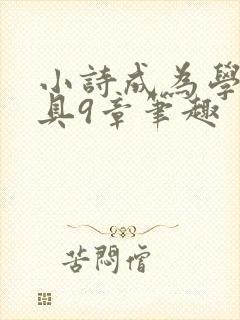 小詩成為學
具9章筆趣
苦悶僧